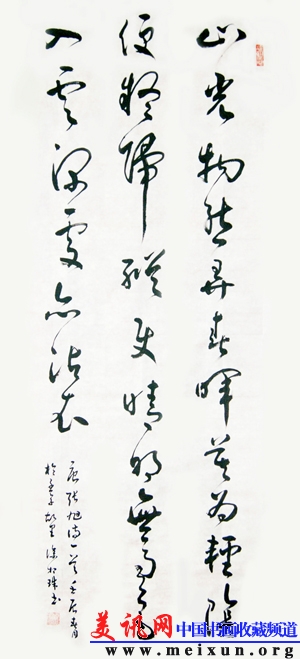 山光物態弄春暉莫為輕陰
便擬歸縱使晴明無雨色
入雲深處亦沾衣
唐張旭詩一首壬辰春月
於
書
美讯网 中国书画收藏频道
www.meixun.org